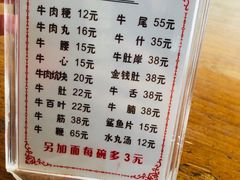 牛肉粳 12元 牛尾 55元
牛肉丸 16元 牛什 35元
牛腰 15元 牛肚岸 38元
牛心 15元 金钱肚 38元
牛肉块 20元 牛舌 38元
牛肚 22元 牛腩 38元
牛百叶 22元 鲨鱼片 15元
牛筋 38元 水丸汤 12元
牛鞭 65元
另加面每碗多3元